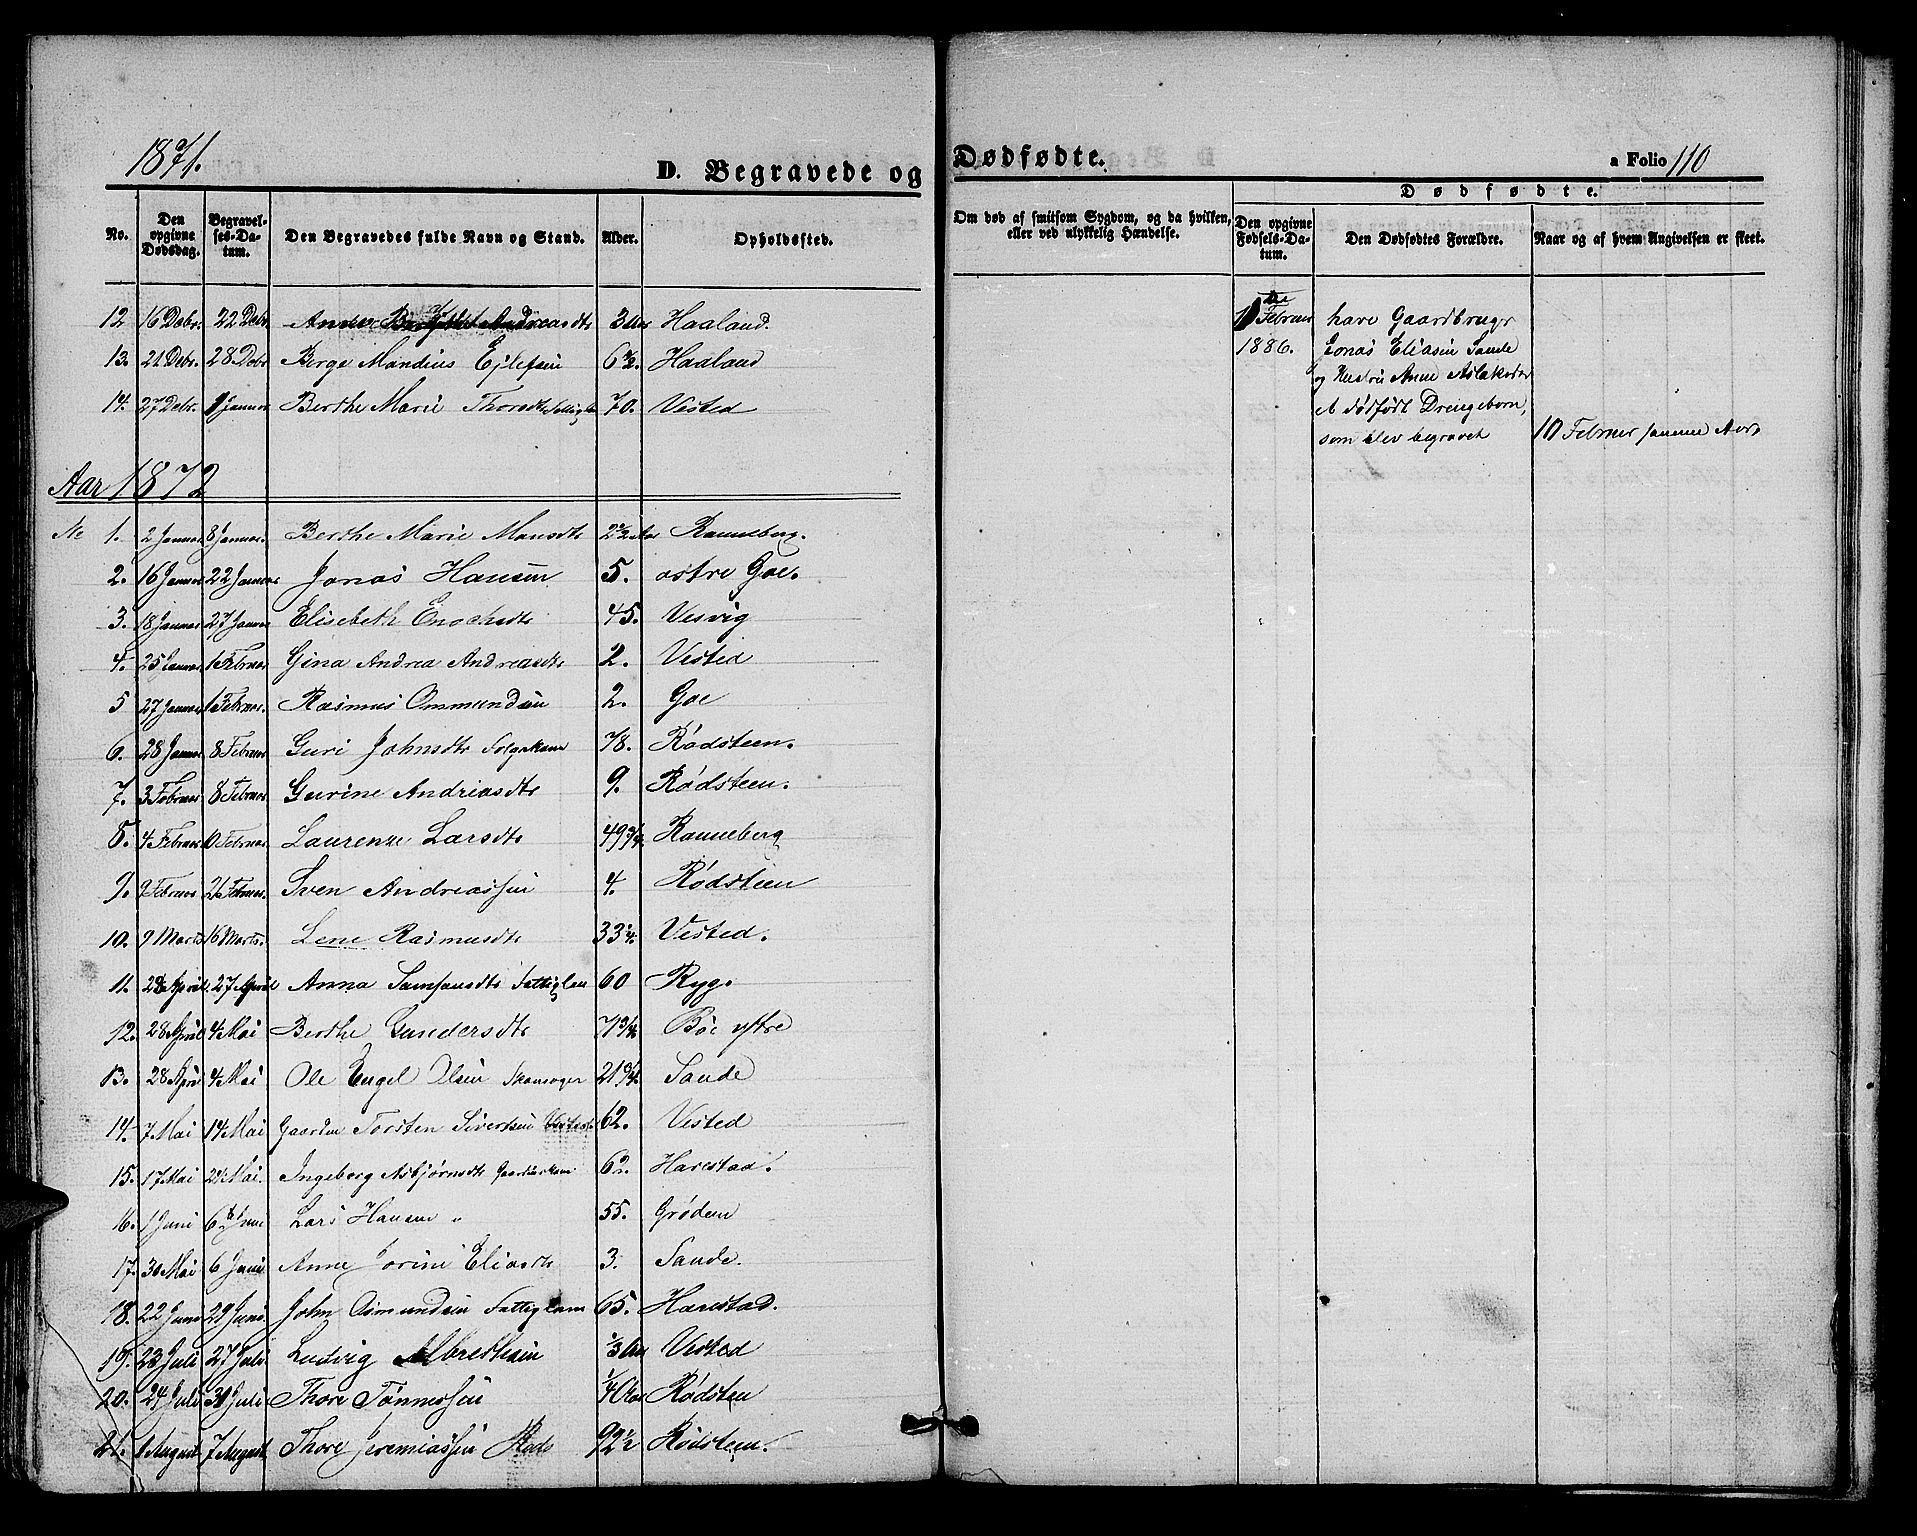 1871.
D. Begravede og Dødfødte.
a Folio 110
No.
Den opgivne Dødsdag.
Begravelses-Datum.
Den Begravedes fulde Navn og Stand.
Alder.
Opholdssted.
Om død af smitsom Sygdom, og da hvilken, eller ved ulykkelig Hændelse.
Dødfødte.
Den opgivne Fødsels-Datum.
Den Dødfødtes Forældre.
Naar og af hvem Angivelsen er skeet.
12 16 Debr. 22 Debr. Andreasdtr 3 Aar Haaland.
13. 21 Debr. 28 Debr. Berge Mandius Ejlefsen 6 ½. Haaland
14. 27 Debr. Januar Berthe Marie Thoresdtr Fattiglem 70. Vested
Februar 1886.
have Gaardbruger
Jonas Eliasen Sande
og Hustru Anne Aslaksdtr
et dødfødt Drengebarn,
som blev begravet 10 Februar samme Aar.
Aar 1872
No 1. 2 Januar 8 Januar. Berthe Marie Monsdtr 2 ½ Aar Ranneberg.
2. 16 Januar 22 Januar Jonas Hansen 5. ostre Goe.
3. 18 Januar 27 Januar Elisebeth Enochsdtr 45. Vesvig
4. 25 Januar 1 Februar Gina Andrea Andreasdtr 2. Vested
5 27 Januar 1 Februar. Rasmus Ommundsen 2. Goe
6. 28 Januar 8 Februar Guri Johnsdtr Folgekone 78. Rødsteen.
7. 3 Februar 8 Februar Gurine Andreasdtr 9. Rødsteen.
8. 4 Februar 10 Februar Laurense Larsdtr 49 ¾. Ranneberg
9. 9 Februar Februar. Sven Andreassen 4. Rødsteen
10. 9 Marts 16 Marts. Lene Rasmusdtr 33 ¼. Vested.
11. April. 27 April Anna Samsonsdtr Fattiglem 60 Ryg.
12. 28 April 4 Mai Berthe Gundersdtr 71 ¾ Bøe ystre
13. 28 April 4 Mai Ole Engel Olsen 21 ¾ Sande
14. 7 Mai 14 Mai Gaardm Torsten Sivertsen Vested 62. Vested
15. 17 Mai 24 Mai. Ingeborg Asbjørnsdtr Gaardmkone 62. Harestad.
16. 1 Juni 6 Juni Lars Hansen „ 55. Grødem
17. 30 Mai 6 Juni Anne Jorine Eliasdtr 3. Sande.
18. 22 Juni 29 Juni. John Osmundsen Fattiglem 65. Harestad.
19. 23 Juli 27 Juli Ludvig Albrethsen ⅓ Aar Vested
20. 24 Juli 30 Juli Thore Tønnessen ¼ Aar Rødsteen
21. 1 August. 7 August Thore Jeremiassen 92 ½ Rødsteen.